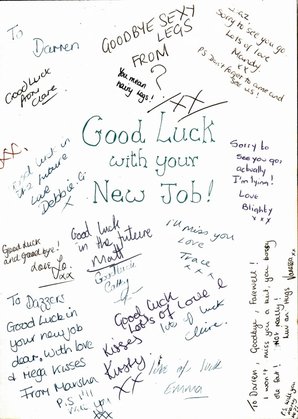 To
Darren
GOODBYE SEXY
LEGS
FROM
?
You mean
hairy legs!
XXX
Gaz
Sorry to see you go
Lots of love
Mandy
xx
PS Don't forget to come and
see us!
Good Luck
from
Claire.
xx.
Good Luck
with your
New Job!
Good luck in
the future
love
Debbie. G
x
Sorry to
see you go,
actually
I'm lying!
Love
Blighty
xxx
Good luck
and good bye!
Love
xx.
Good luck
in the future
Matt
Good luck
I'll miss you
Love
Trace
x x x
To DAZZERS
Good Luck in
your new job
dear, with love
& Mega Kisses
From Marsha
P.S I'll
Miss you
Good luck
Lots of Love &
Kisses
Kirsty!
XX
love & luck
Claire.
love & luck
Emma
To Darren, Goodbye, Farewell!
I won't miss you a bit, you boring
old fart! Not really!
Luv an hugs